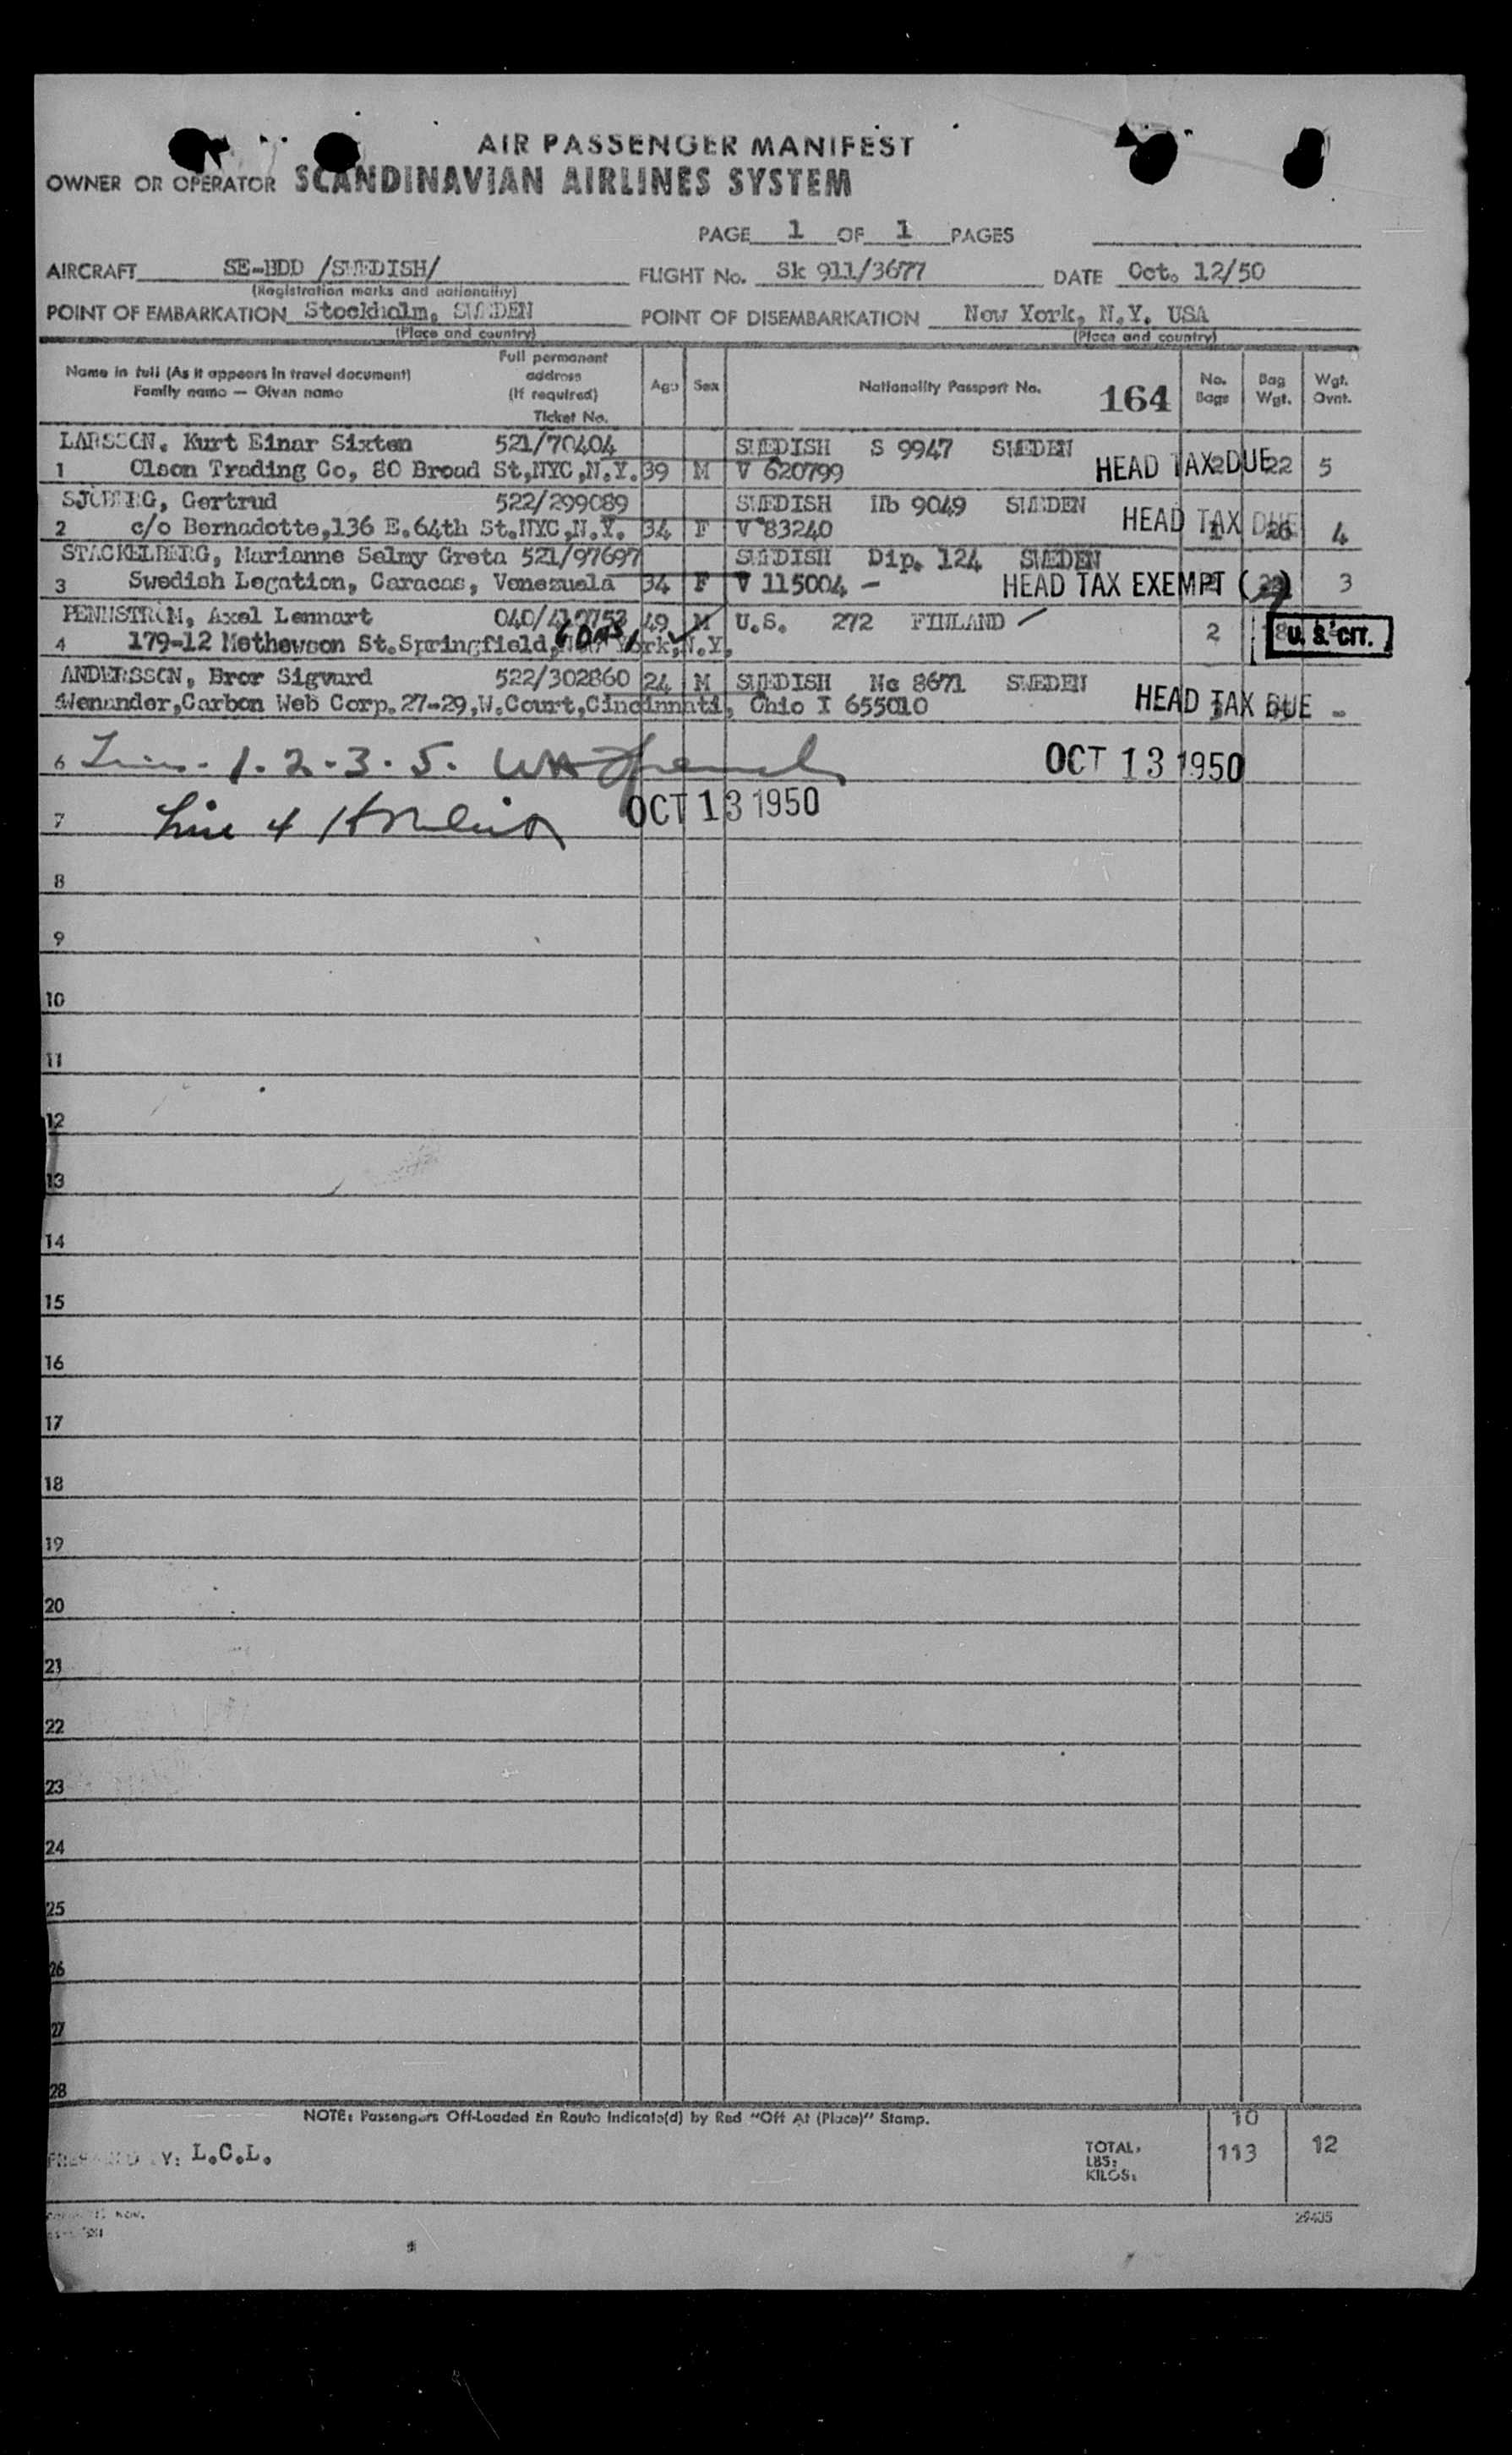 AIR PASSENGER MANIFEST
OWNER OR OPERATOR SCANDINAVIAN AIRLINES SYSTEM
PAGE 1 OF 1 PAGES
AIRCRAFT SE-BDD /SWEDISH/ FLIGHT No. Sk 911/3677 DATE Oct. 12/50
(Registration marks and nationality)
POINT OF EMBARKATION Stockholm, SWEDEN POINT OF DISEMBARKATION New York, N.Y. USA
(Place and country) (Place and country)
Name in full (As it appears in travel document) Family name — Given name Full permanent address (If required) Ticket No. Age Sex Nationality Passport No. 164 No. Bags Bag Wgt. Wgt. Ovnt.
LARSSON, Kurt Einar Sixten 521/70404 SWEDISH S 9947 SWEDEN
1 Olson Trading Co, 80 Broad St,NYC,N.Y. 39 M V 620799 HEAD TAX DUE 2 22 5
SJÖBERG, Gertrud 522/299089 SWEDISH IIb 9049 SWEDEN
2 c/o Bernadotte,136 E.64th St.NYC,N.Y. 34 F V 83240 HEAD TAX DUE 26 4
STACKELBERG, Marianne Selmy Greta 521/97697 SWEDISH Dip. 124 SWEDEN
3 Swedish Legation, Caracas, Venezuela 34 F V 115004 - HEAD TAX EXEMPT ( ) 3
PENNSTRÖM, Axel Lennart 040/ 49 M U.S. 272 FINLAND
4 179-12 Mathewson St.Springfield, New York,N.Y. 2 U.S. CIT.
ANDERSSON, Bror Sigvard 522/302860 24 M SWEDISH Nc 8671 SWEDEN
Wenander,Carbon Web Corp.27-29,W.Court,Cincinnati, Ohio I 655010 HEAD TAX DUE -
6 1. 2. 3. 5. OCT 13 1950
7 Line 4 OCT 13 1950
8
9
10
11
12
13
14
15
16
17
18
19
20
21
22
23
24
25
26
27
28
NOTE: Passengers Off-Loaded En Route Indicate(d) by Red "Off At (Place)" Stamp.
10
PREPARED BY: L.C.L. TOTAL. LBS: KILOS: 113 12
29405